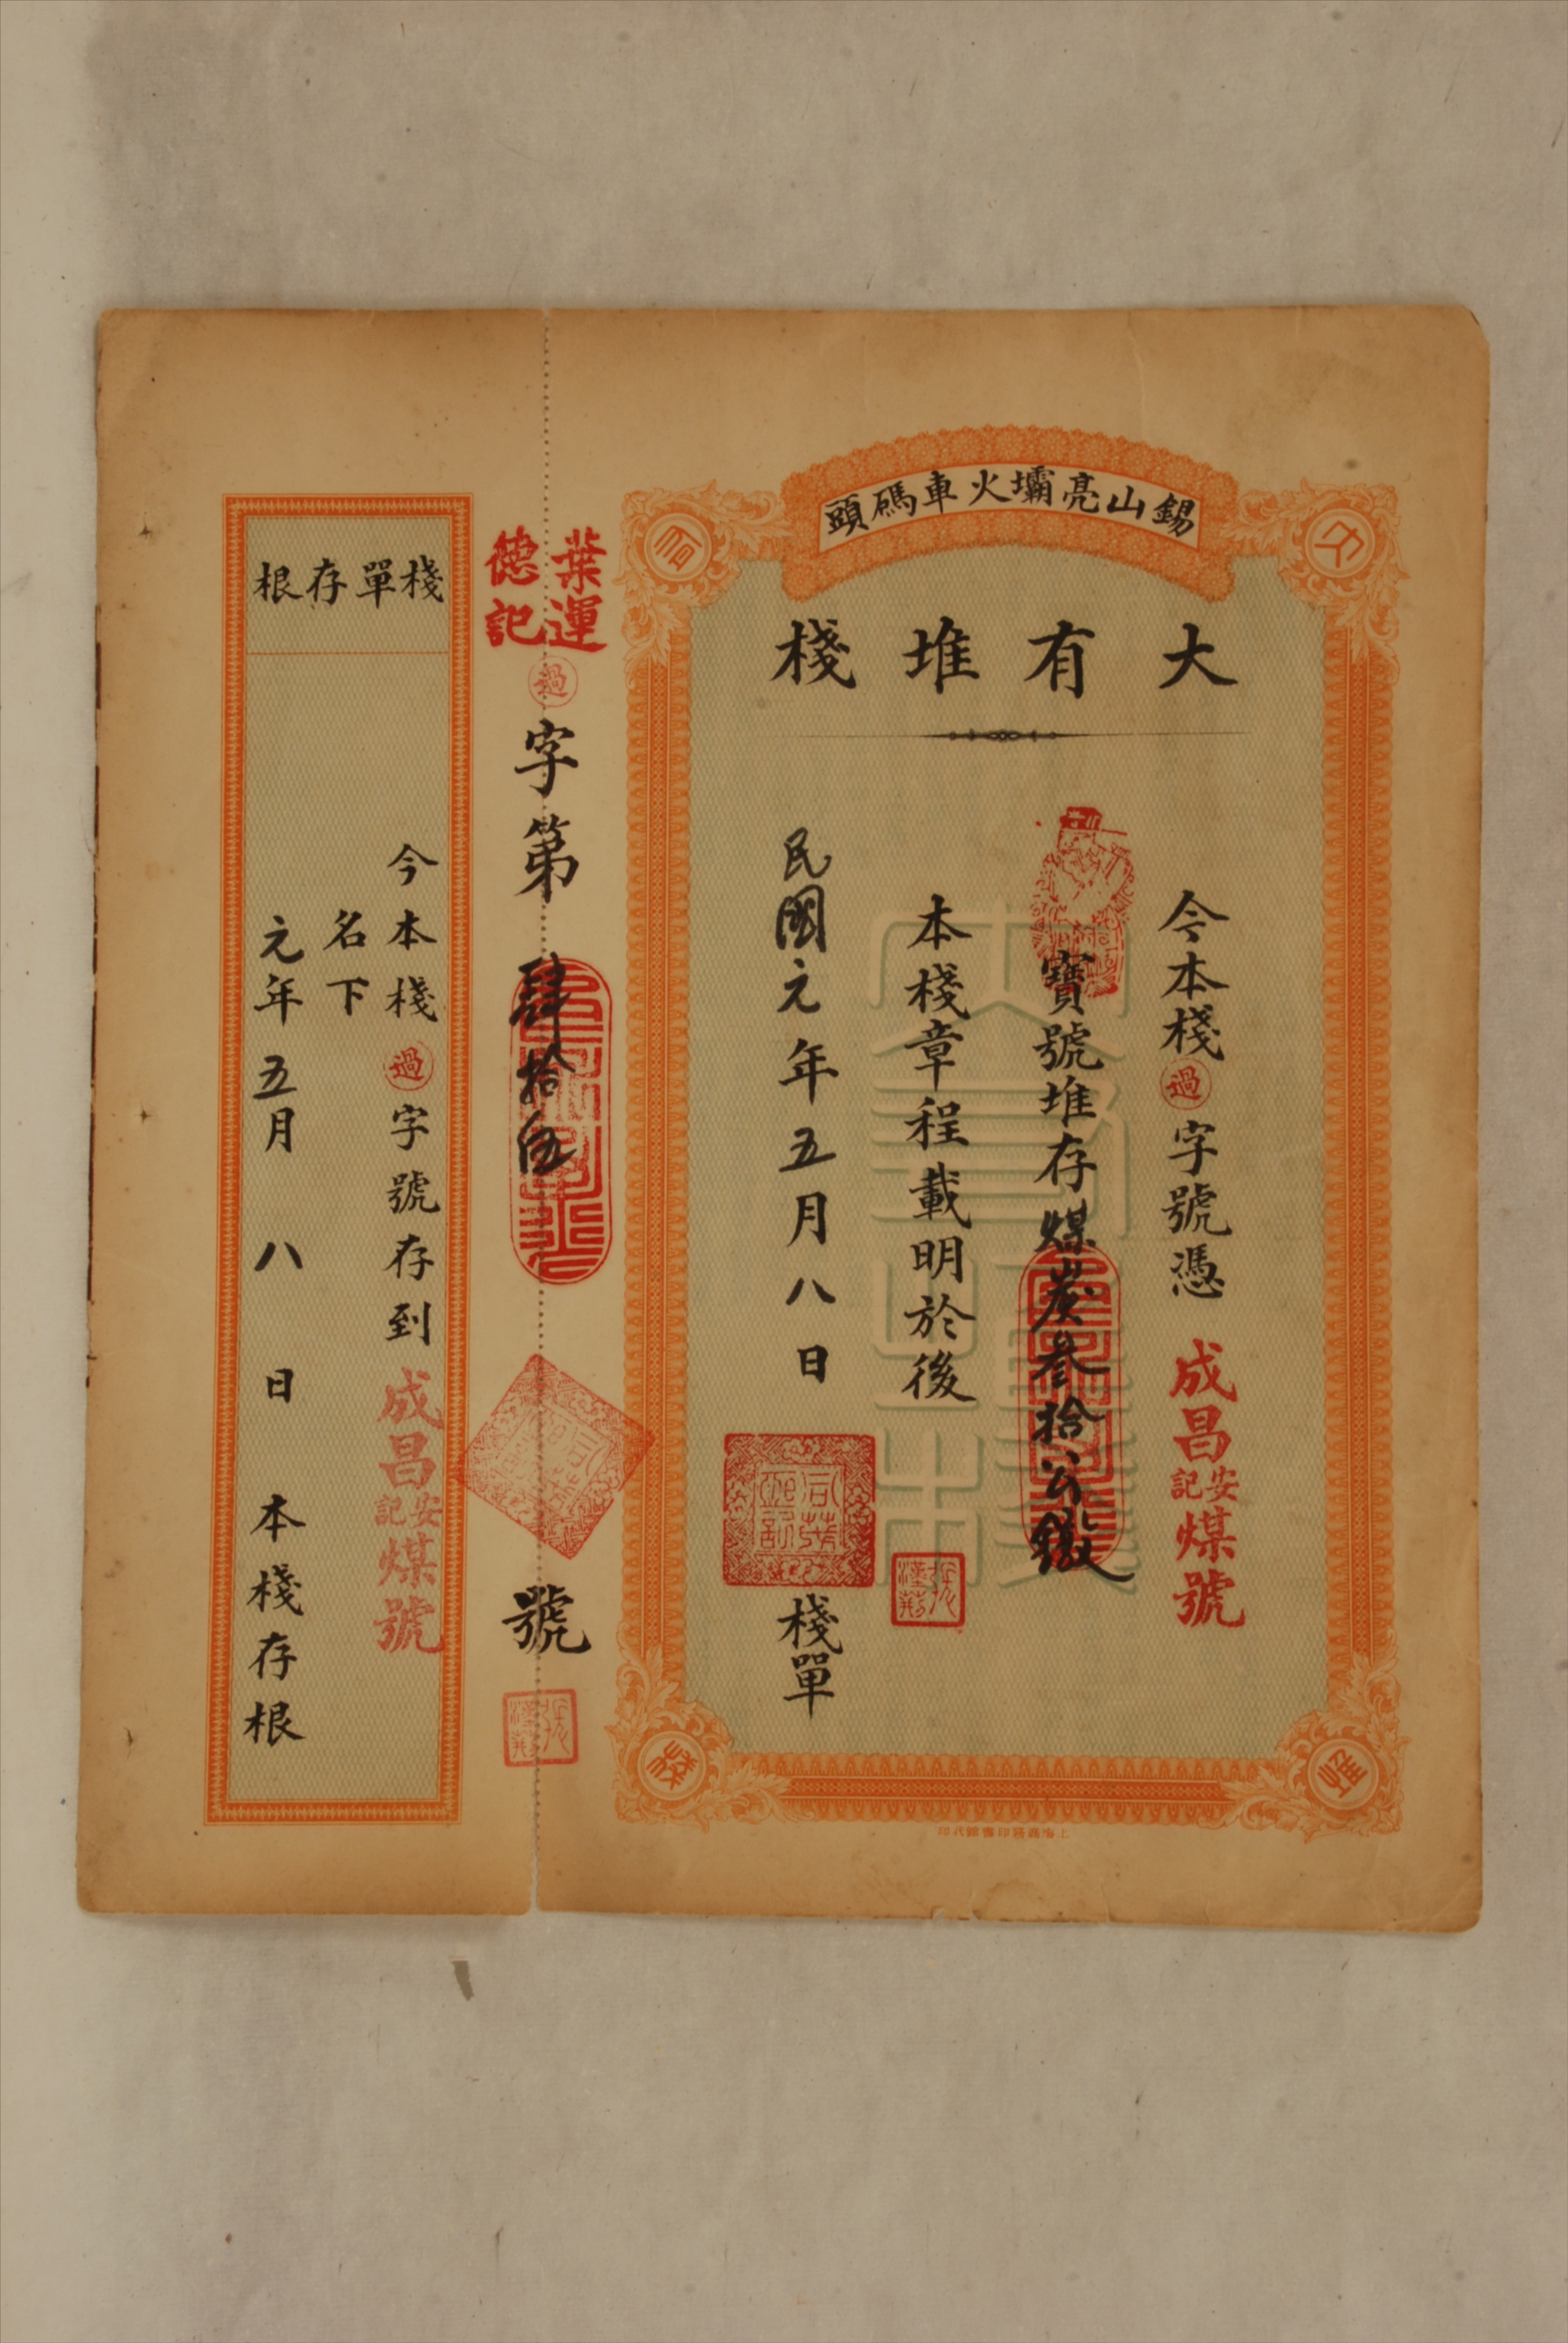 錫山亮壩火車碼頭
大有堆棧
今本棧過字號憑成昌安記煤號
寶號堆存煤炭叁拾公鐓
本棧章程載明於後
民國元年五月八日
棧單
大
有
堆
棧
上海商務印書館代印
葉運德記
過字第肆拾伍號
棧單存根
今本棧過字號存到成昌安記煤號
名下
元年五月八日本棧存根